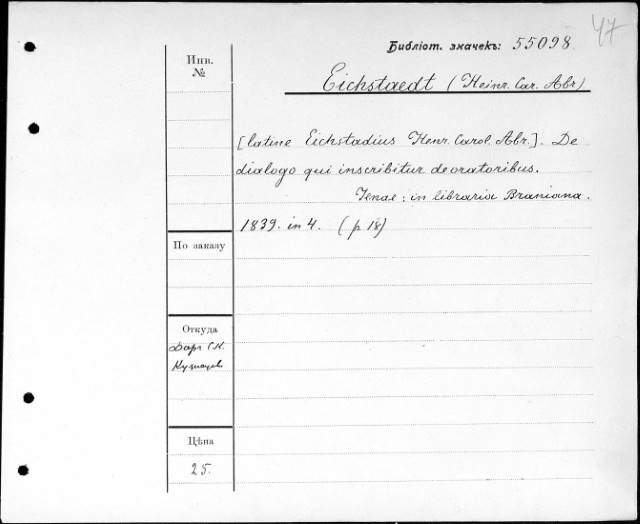 47
Библіот. значекъ: 55098
Инв.
№
Eichstaedt (Heinr. Car. Abr)
[latine Eichstadius Henr. Carol. Abr.]. De
dialogo qui inscribitur de oratoribus.
Ienae: in libraria Braniana.
1839. in 4. (p 18)
По заказу
Откуда
Даръ С.К.
Кузнецов
Цѣна
25.